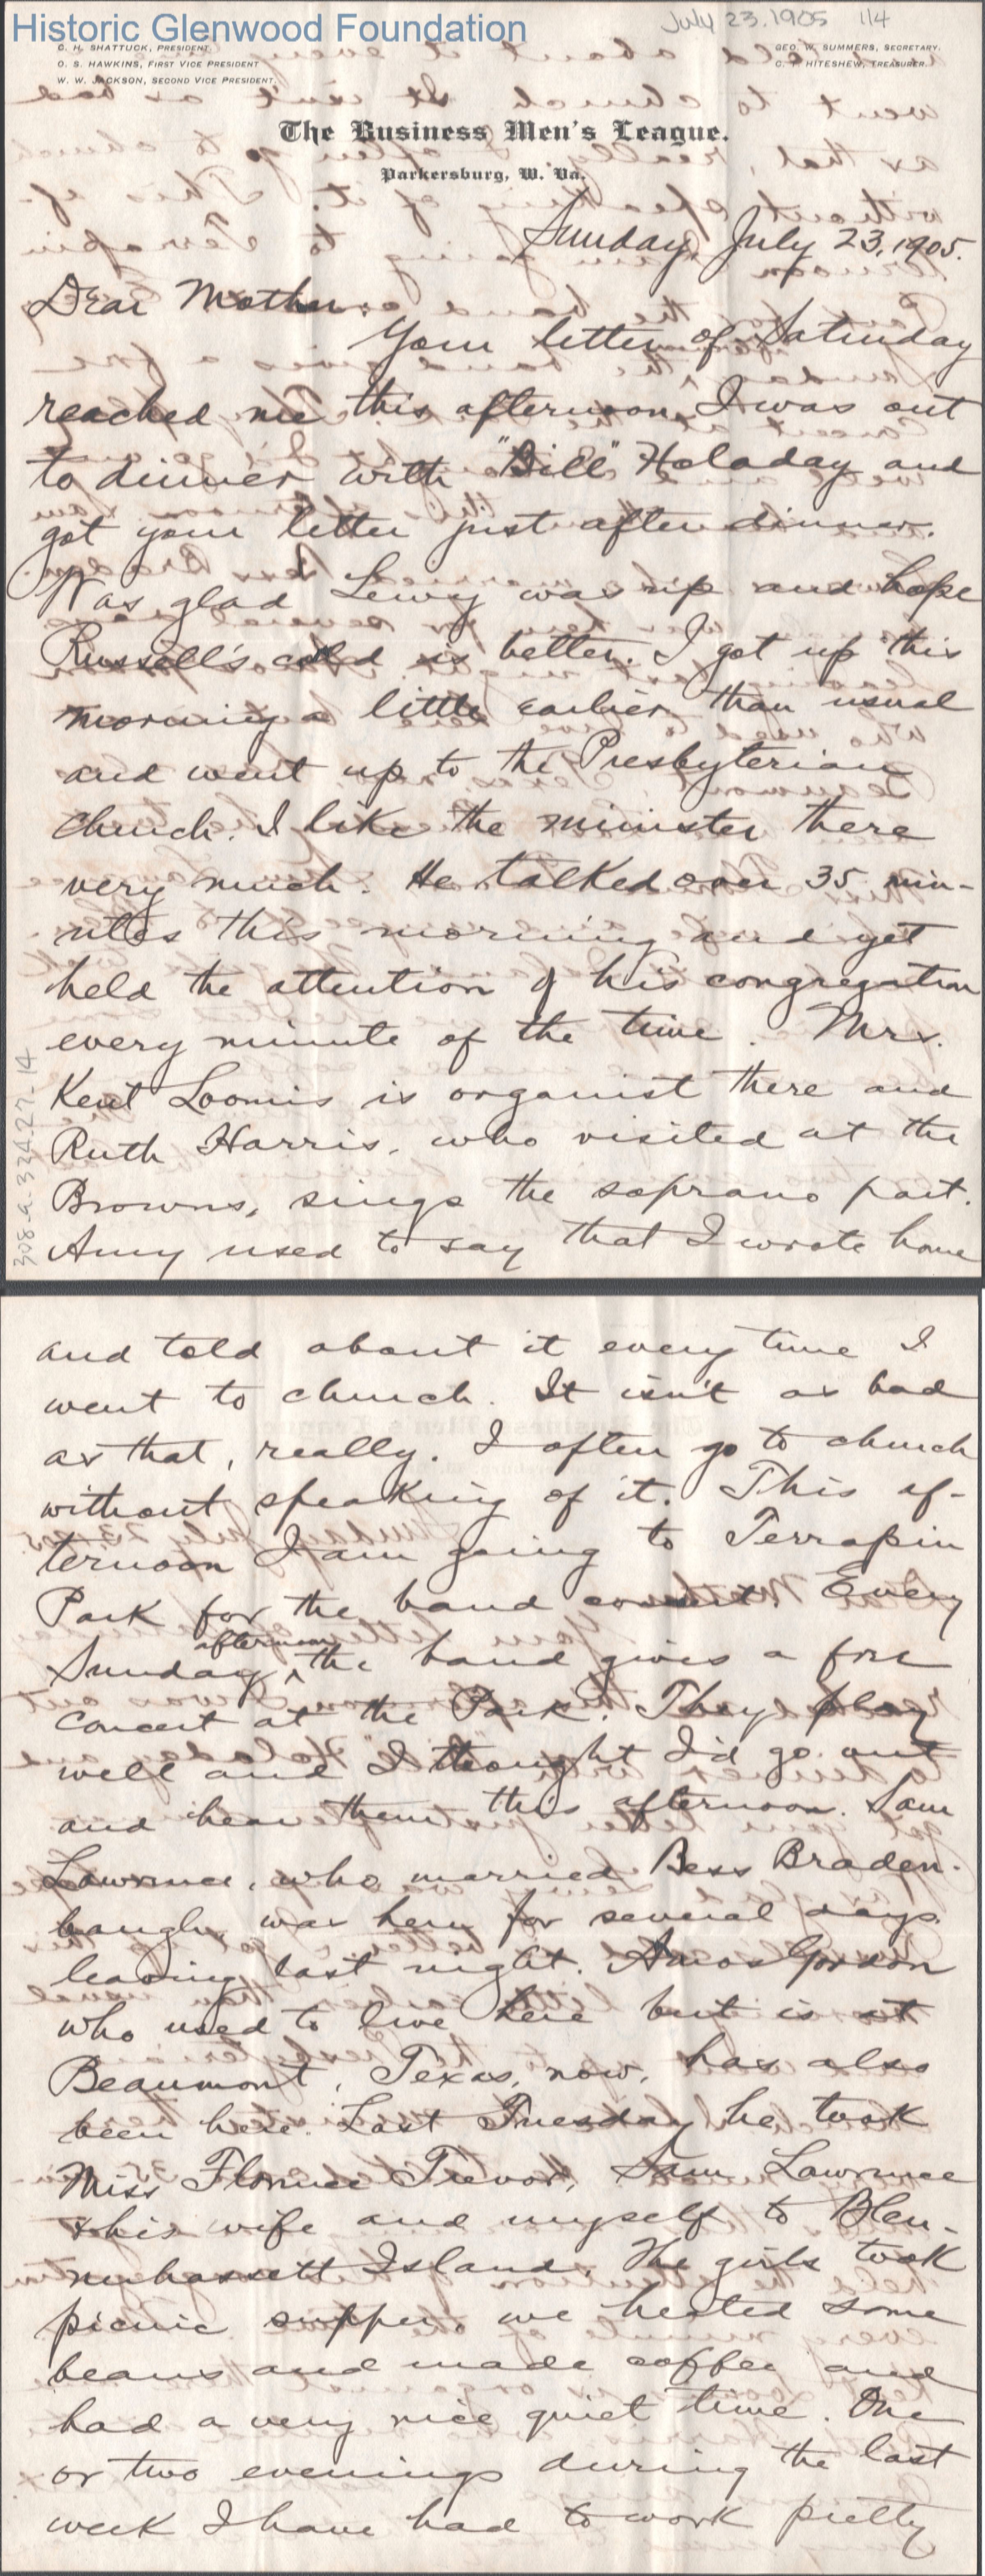 Historic Glenwood Foundation
July 23. 1905 114
C. H. SHATTUCK, PRESIDENT
O. S. HAWKINS, FIRST VICE PRESIDENT
W. W. JACKSON, SECOND VICE PRESIDENT
GEO. W. SUMMERS, SECRETARY.
C. T. HITESHEW, TREASURER.
The Business Men's League.
Parkersburg, W. Va.
Sunday July 23, 1905.
Dear Mother.
Your letter of Saturday
reached me this afternoon. I was out
to dinner with "Bill" Holaday and
got your letter just after dinner.
Was glad Lewy was up and hope
Russell's cold is better. I got up this
morning a little earlier than usual
and went up to the Presbyterian
church. I like the minister there
very much. He talked over 35 min-
utes this morning and yet
held the attention of his congregation
every minute of the time. Mrs.
Kent Loomis is organist there and
Ruth Harris, who visited at the
Browns, sings the soprano part.
Amy used to say that I wrote home
308-a-324.27-14
and told about it every time I
went to church. It isn't as bad
as that, really. I often go to church
without speaking of it. This af-
ternoon I am going to Terrapin
Park for the band concert. Every
Sunday afternoon the band gives a free
concert at the Park. They play
well and I thought I'd go out
and hear them this afternoon. Sam
Lawrence, who married Bess Braden-
baugh, was here for several days
leaving last night. Amos Gordon
who used to live here but is at
Beaumont, Texas, now, has also
been here. Last Tuesday he took
Miss Florence Trevor, Sam Lawrence
& his wife and myself to Blen-
nerhassett Island. The girls took
picnic supper, we heated some
beans and made coffee and
had a very nice quiet time. One
or two evenings during the last
week I have had to work pretty